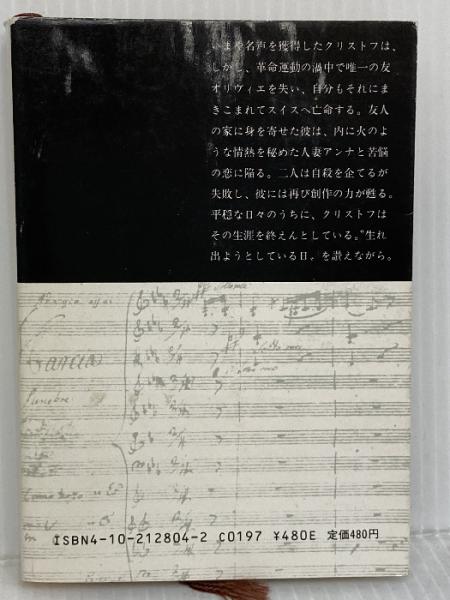 いまや名声を獲得したクリストフは、
しかし、革命運動の渦中で唯一の友
オリヴィエを失い、自分もそれにま
きこまれてスイスへ亡命する。友人
の家に身を寄せた彼は、内に火のよ
うな情熱を秘めた人妻アンナと苦悩
の恋に陥る。二人は自殺を企てるが
失敗し、彼には再び創作の力が甦る。
平穏な日々のうちに、クリストフは
その生涯を終えんとしている。〝生れ
出ようとしている日〟を讃えながら。
Marcia
funebre
ISBN4-10-212804-2 C0197 ¥480E 定価480円